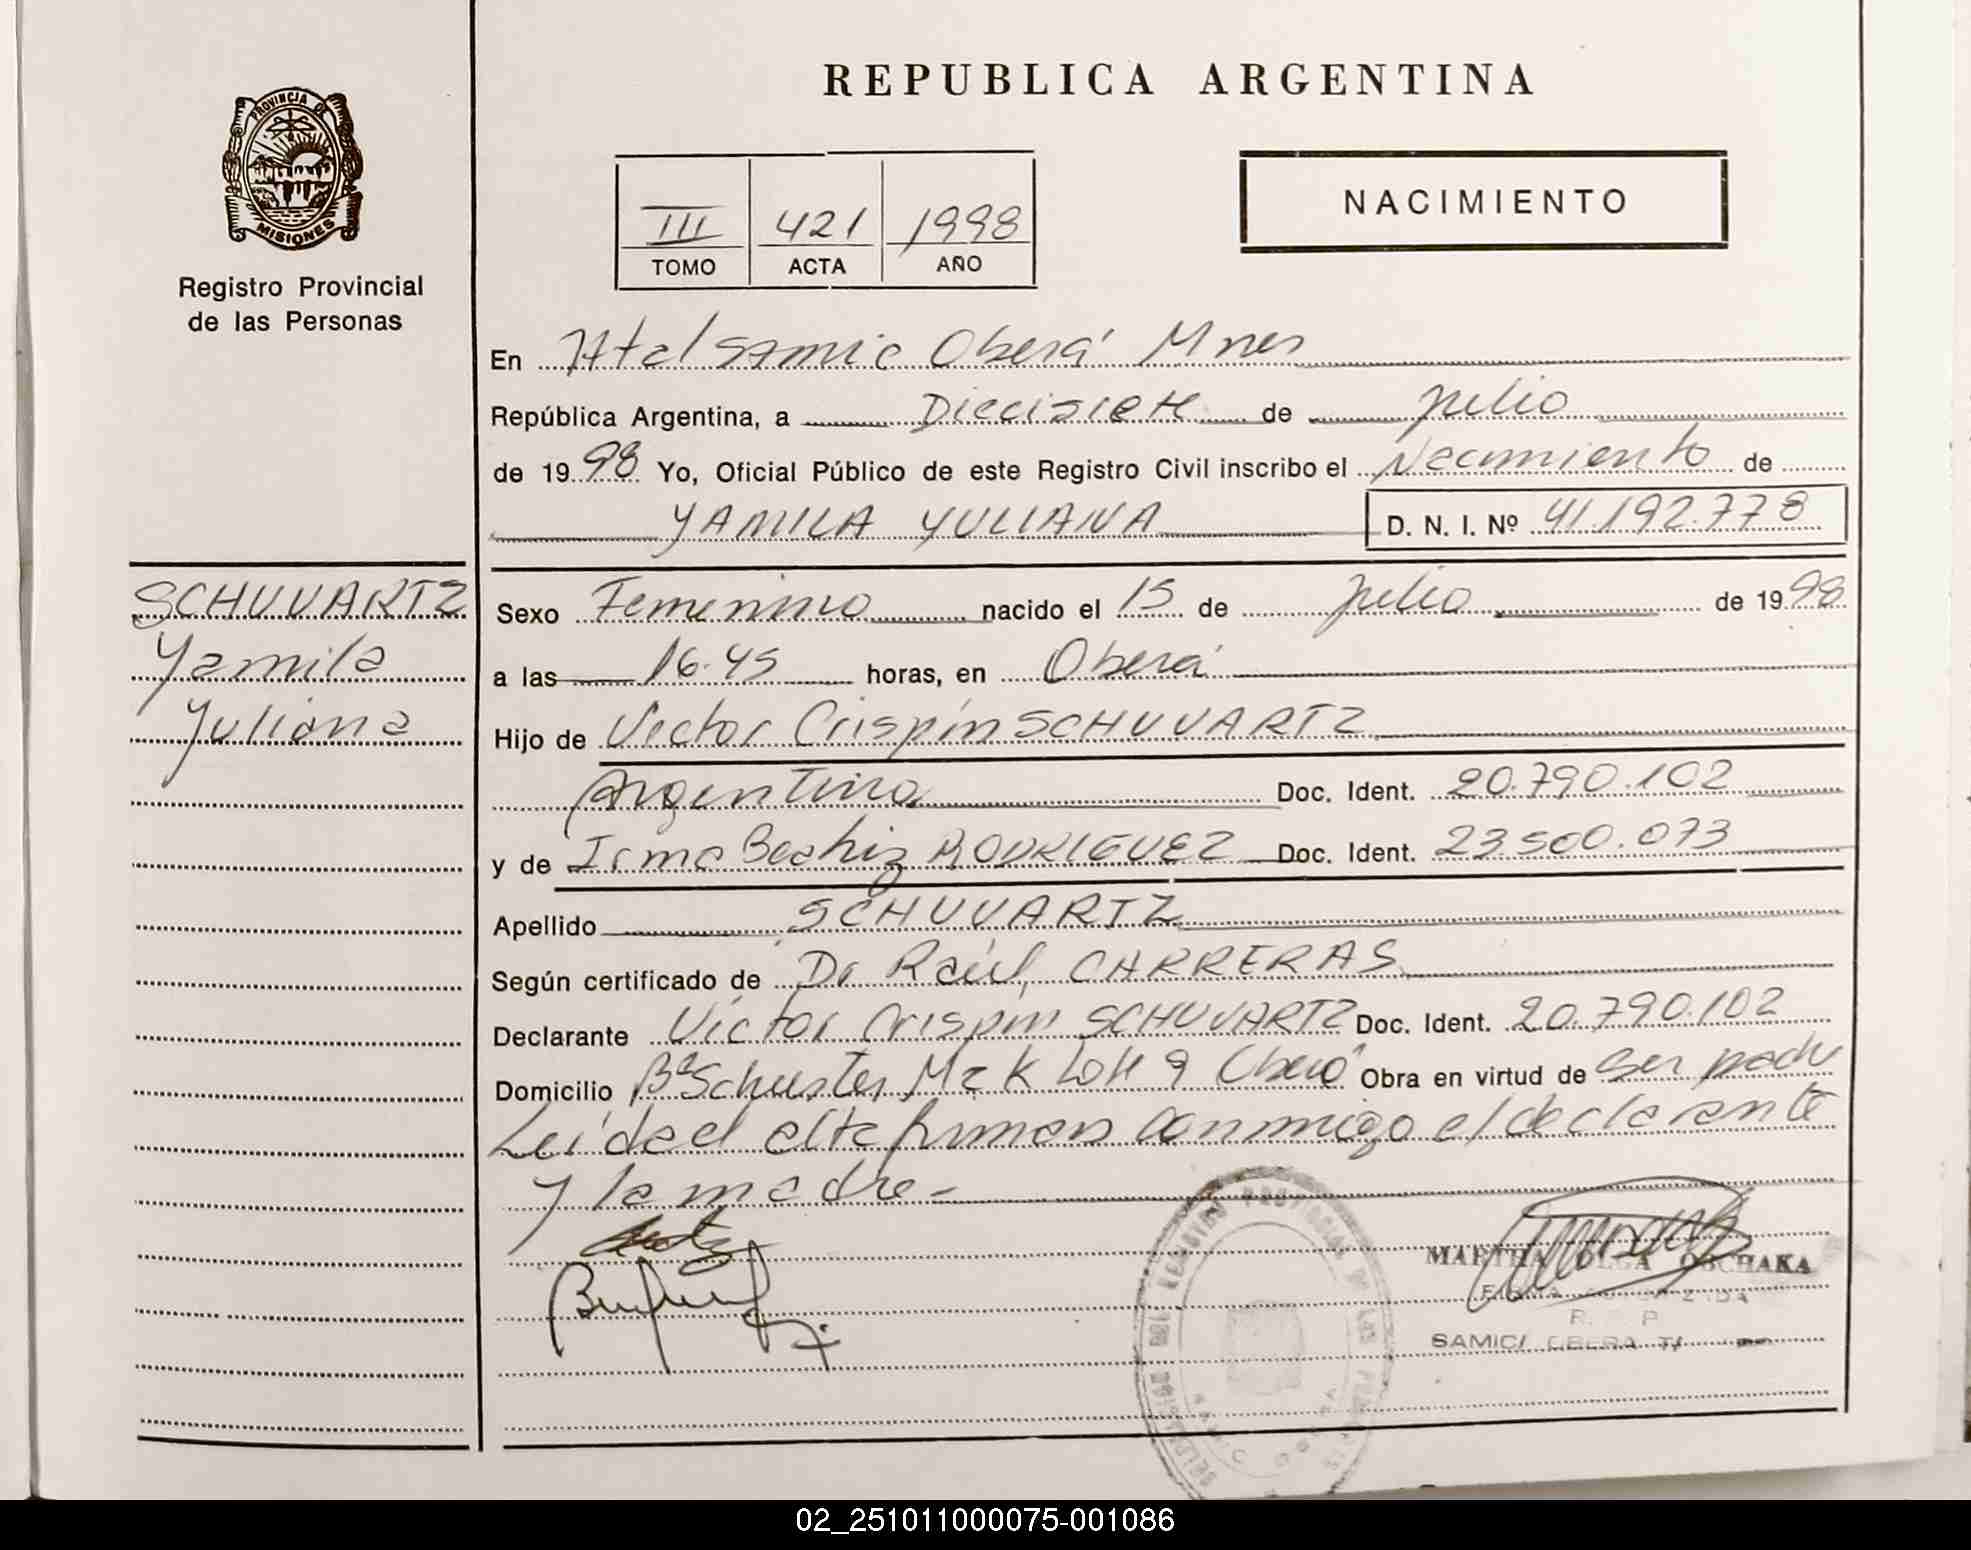 REPUBLICA ARGENTINA
PROVINCIA DE
MISIONES
Registro Provincial
de las Personas
III 421 1998
TOMO ACTA AÑO
NACIMIENTO
En Htal Samic Oberá Mnes
República Argentina, a Diecisiete de Julio
de 1998 Yo, Oficial Público de este Registro Civil inscribo el Nacimiento de
YAMILA YULIANA D. N. I. Nº 41.192.778
SCHUVARTZ
Yamila
Yuliana
Sexo Femenino nacido el 15 de Julio de 1998
a las 16.45 horas, en Oberá
Hijo de Victor Crispín SCHUVARTZ
Argentina Doc. Ident. 20.790.102
y de Irma Beatriz RODRIGUEZ Doc. Ident. 23.500.073
Apellido SCHUVARTZ
Según certificado de Dr Raúl, CARRERAS
Declarante Víctor Crispín SCHUVARTZ Doc. Ident. 20.790.102
Domicilio Bº Schuster Mz K Lote 9 Oberá Obra en virtud de ser padre
Leída el acta firman conmigo el declarante
y la madre.-
REGISTRO PROVINCIAL DE LAS PERSONAS
MARTHA OLGA OSCHAKA
R. P
SAMIC/ OBERA
02_251011000075-001086